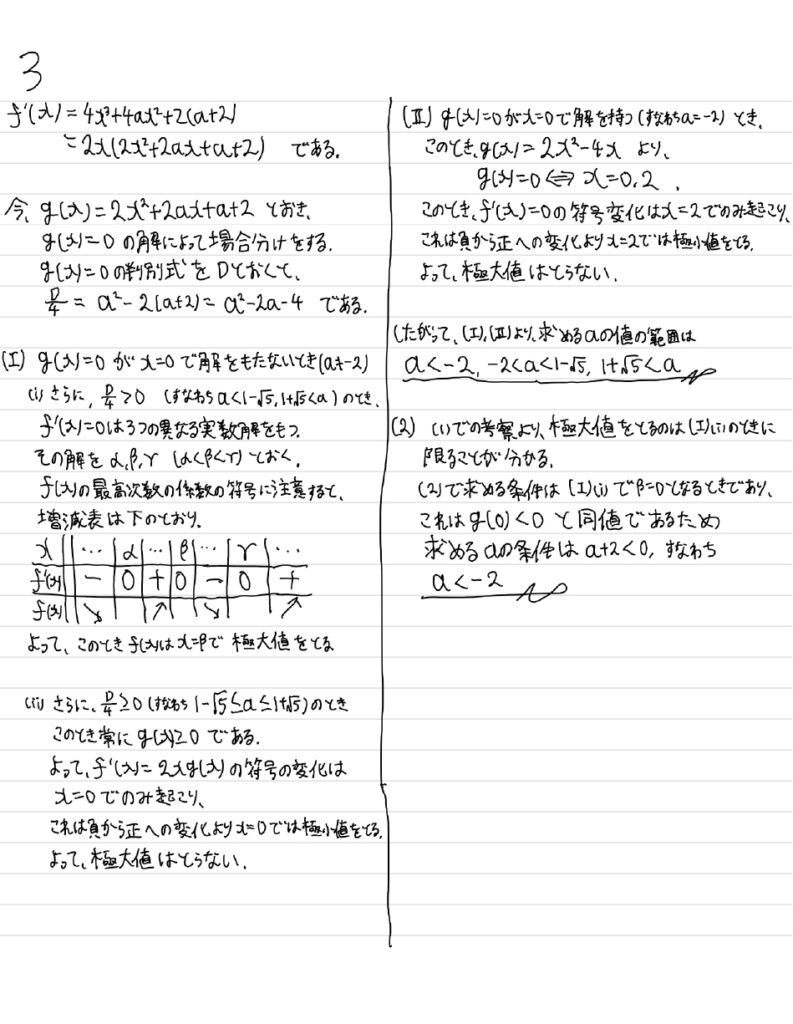 3
f'(x) = 4x³+4ax²+2(a+2)
= 2x(2x²+2ax+a+2) である.
今, g(x) = 2x²+2ax+a+2 とおき,
g(x)=0 の解によって場合分けをする.
g(x)=0の判別式をDとおくと,
D/4 = a²-2(a+2) = a²-2a-4 である.
(I) g(x)=0 が x=0 で解をもたないとき(a≠-2)
(i) さらに, D/4>0 (すなわち a<1-√5, 1+√5<a) のとき,
f'(x)=0は3つの異なる実数解をもつ.
その解を α,β,γ (α<β<γ) とおく.
f(x)の最高次数の係数の符号に注意すると,
増減表は下のとおり.
x … α … β … γ …
f'(x) - 0 + 0 - 0 +
f(x) ↘ ↗ ↘ ↗
よって, このとき f(x)は x=βで 極大値をとる
(ii) さらに, D/4≥0 (すなわち 1-√5≤a≤1+√5) のとき
このとき常に g(x)≥0 である.
よって, f'(x)= 2xg(x) の符号の変化は
x=0 でのみ起こり,
これは負から正への変化より x=0では極小値をとる.
よって, 極大値はとらない.
(II) g(x)=0 が x=0 で解を持つ (すなわち a=-2) とき,
このとき, g(x) = 2x²-4x より,
g(x)=0 ⇔ x=0,2 .
このとき, f'(x)=0の符号変化は x=2でのみ起こり,
これは負から正への変化より x=2では極小値をとる.
よって, 極大値はとらない.
したがって, (I),(II)より, 求めるaの値の範囲は
a<-2, -2<a<1-√5, 1+√5<a
(2) (1)での考察より, 極大値をとるのは (I)(i)のときに
限ることが分かる.
(2)で求める条件は (I)(i) でβ=0となるときであり,
これは g(0)<0 と同値であるため
求めるaの条件は a+2<0, すなわち
a<-2